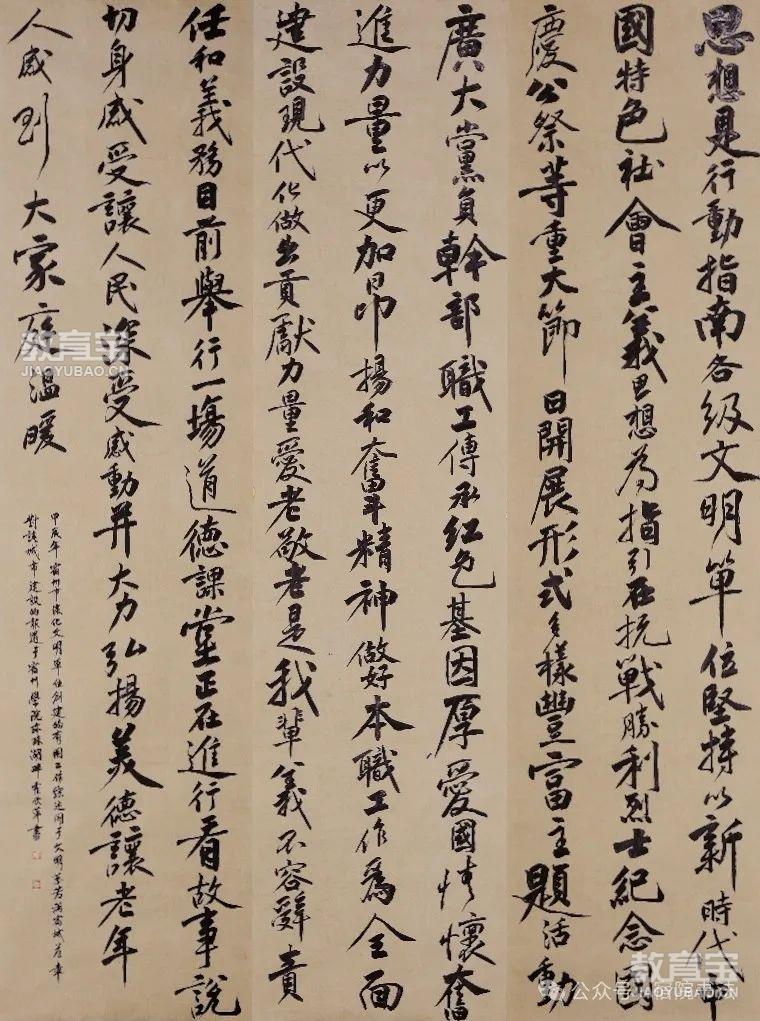 思想是行動指南各级文明單位堅持以新時代中
國特色社會主義思想為指引在抗戰勝利烈士紀念國
慶公祭等重大節日開展形式多樣豐富主題活動
廣大黨員幹部職工傳承红色基因厚愛國情懷奮
進力量以更加昂揚和奮斗精神做好本職工作爲全面
建設現代化做出貢獻力量愛老敬老是我輩義不容辭責
任和義務目前舉行一場道德課堂正在進行看故事說
切身感受讓人民深受感動并大力弘揚美德讓老年
人感到大家庭温暖
甲辰年宿州市深化文明單位創建的有關工作綜述關于文明
對該城市建設的報道于宿州學院
書
教育宝
JIAOYUBAO.CN
教育宝
JIAOYUBAO.CN
教育宝
JIAOYUBAO.CN
公众号